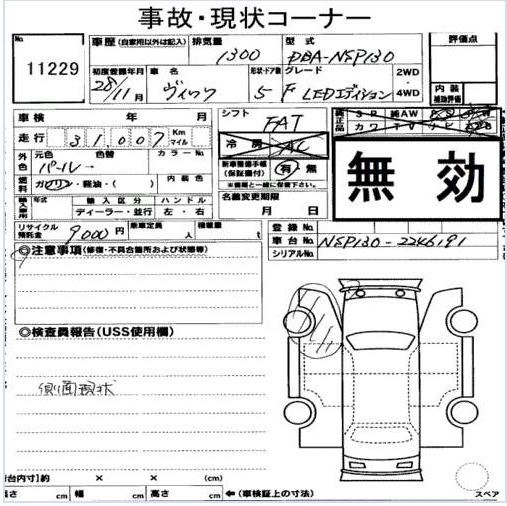 事故・現状コーナー
No. 11229
車歴 (自家用以外は記入) 排気量 1300 型式 DBA-NSP130 評価点
初度登録年月 28年11月 車名 ヴィッツ 形状・ドア数 5 グレード F LEDエディション 2WD・4WD 内装補助評価
車検 年 月 シフト FAT 純正品
走行 31,007 Km マイル 冷房 AC
外色 元色 パール 色替 カラーNo. 新車整備手帳(保証書付) 有・無
※書類と一緒に保管下さい。
無効
燃料 ガソリン・軽油・( ) 内装色 名義変更期限
年式 輸入区分 ハンドル 月 日
ディーラー・並行 左・右
リサイクル預託金 9000円 乗車定員 人 積載量 t
登録No.
車台No. NSP130-2246191
シリアルNo.
◎注意事項 (修復・不具合箇所および状態等)
◎検査員報告 (USS使用欄)
側面現状
台内寸)約 × × (cm)
長さ cm 幅 cm 高さ cm ←(車検証上の寸法)
スペア